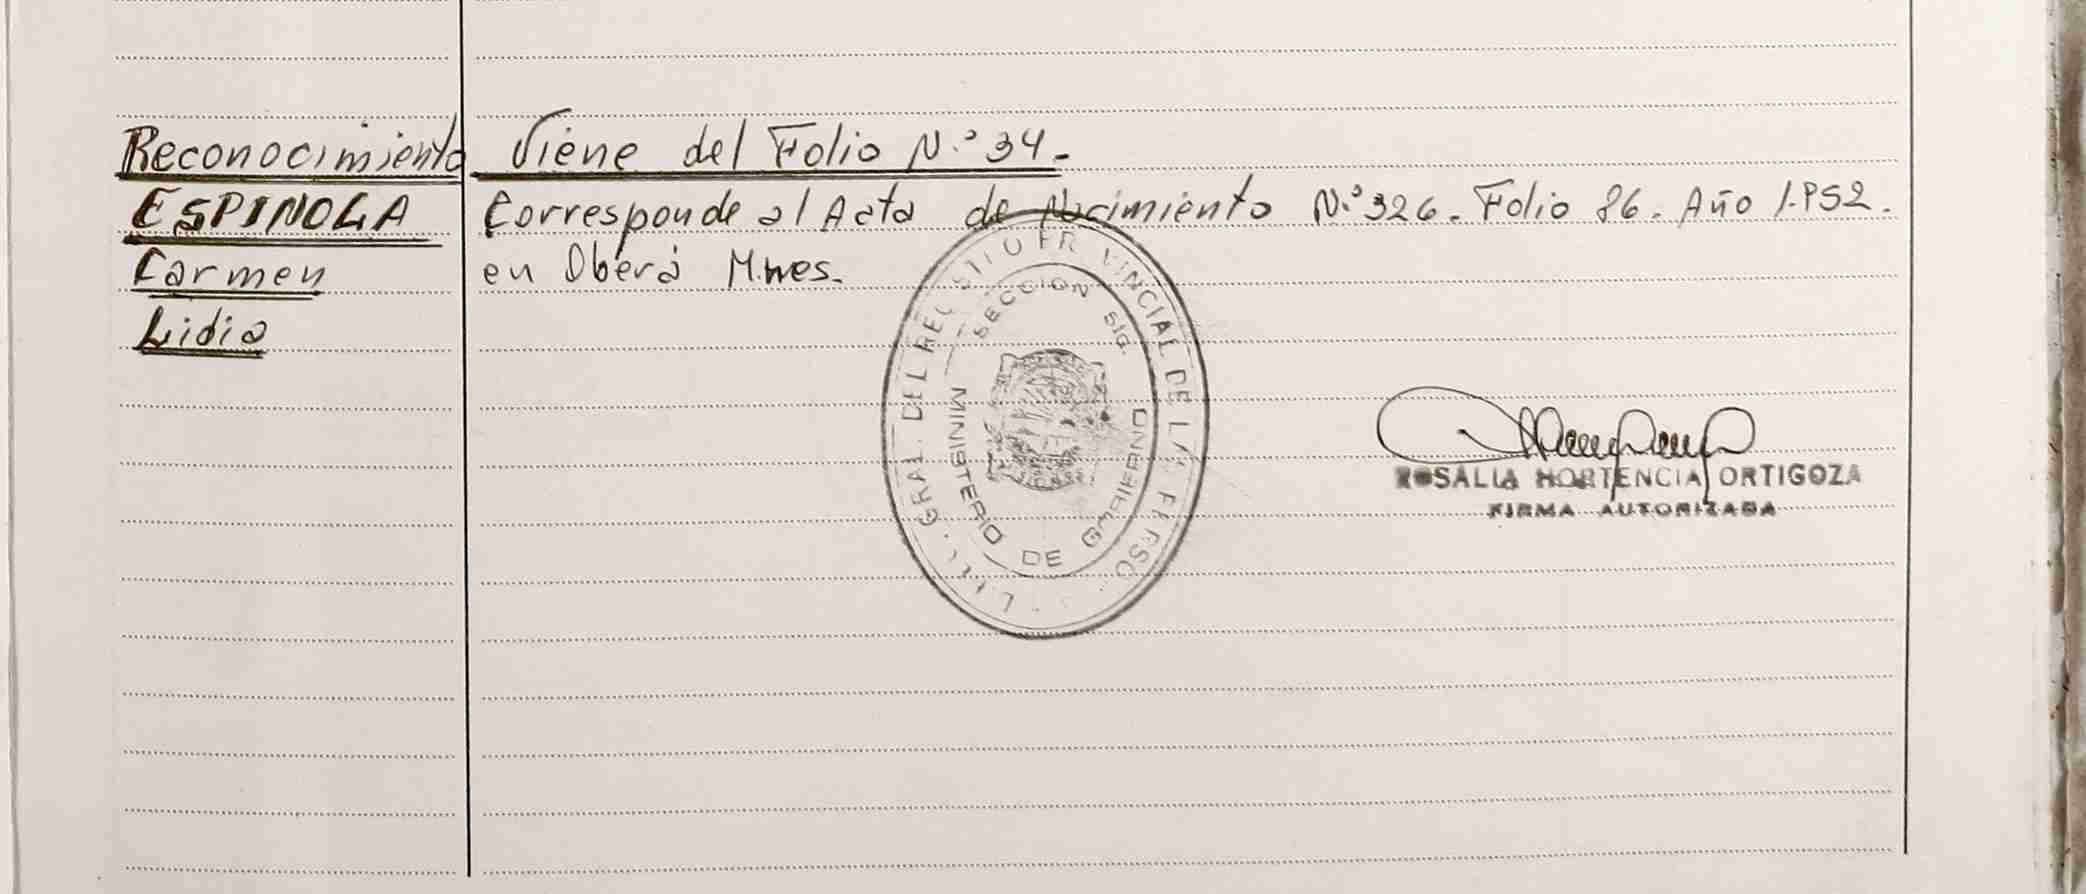 Reconocimiento Viene del Folio N.º 34.-
ESPINOLA Corresponde al Acta de Nacimiento N.º 326. Folio 86. Año 1.952.
Carmen en Oberá M.nes.
Lidia
SECCION SIG.
MINISTERIO DE GOBIERNO
ROSALIA HORTENCIA ORTIGOZA
FIRMA AUTORIZADA